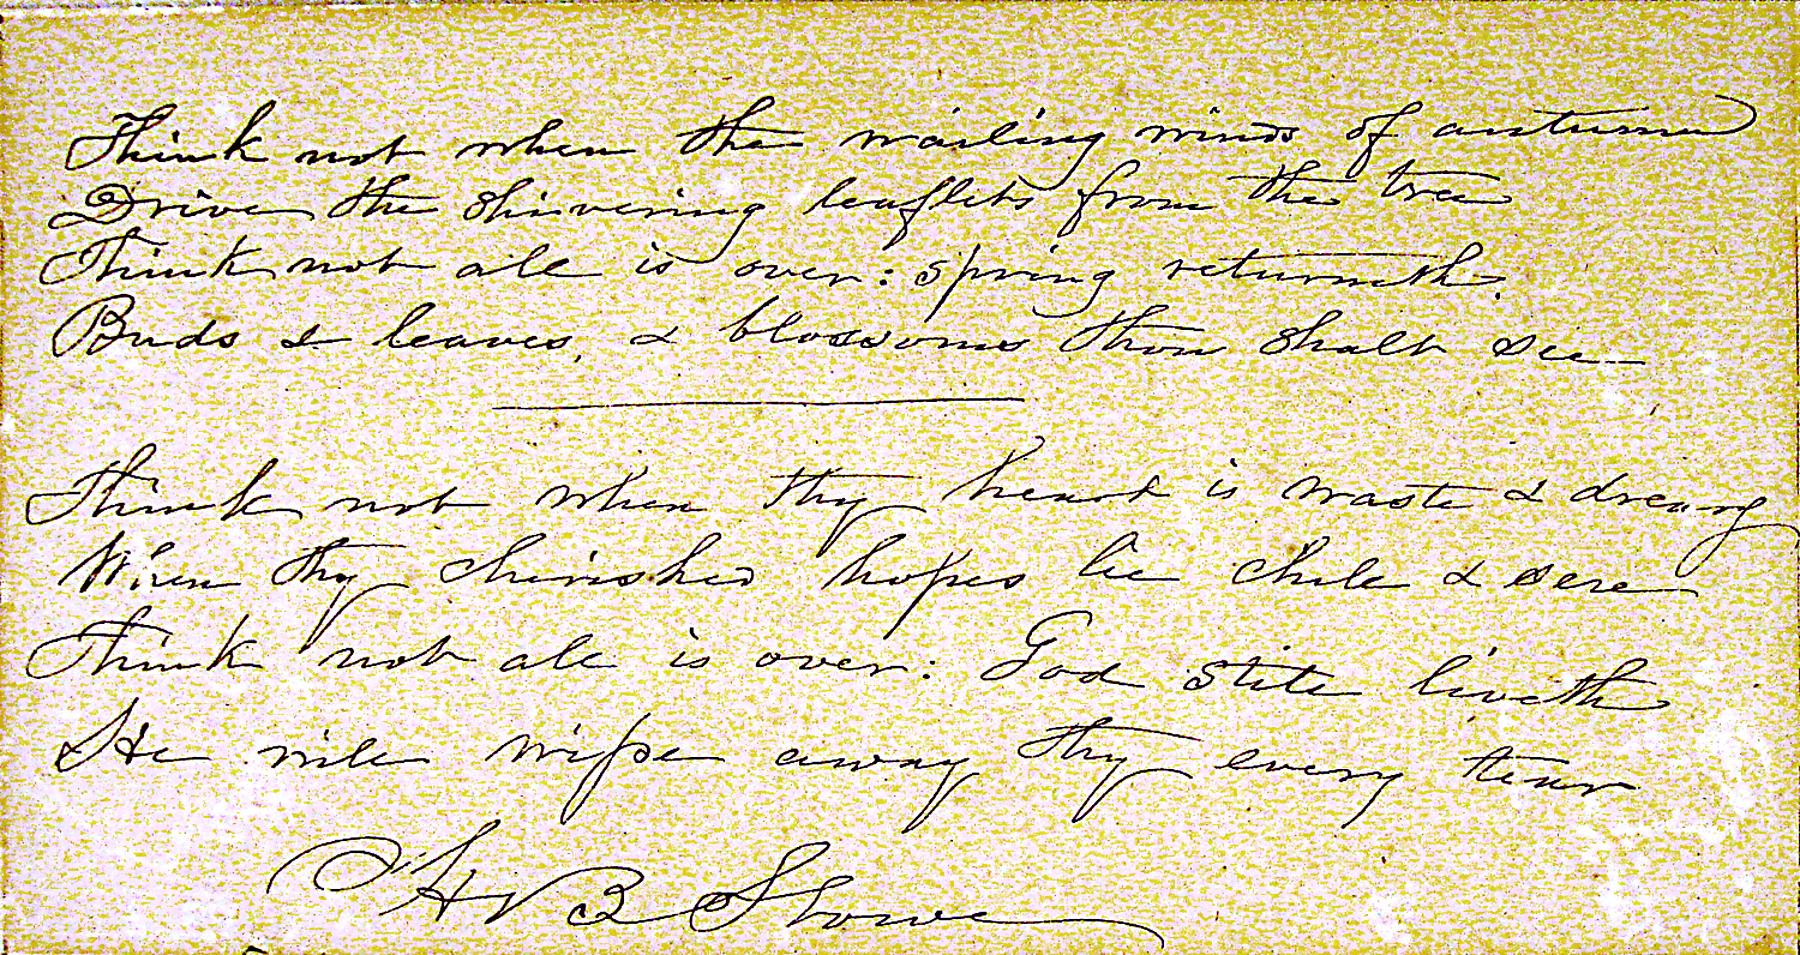 Think not when the wailing winds of autumn
Drive the shivering leaflets from the tree
Think not all is over: spring returneth.
Buds & leaves, & blossoms thou shalt see
Think not when thy heart is waste & dreary
When thy cherished hopes lie chill & sere
Think not all is over: God still liveth
He will wipe away thy every tear
H B Stowe